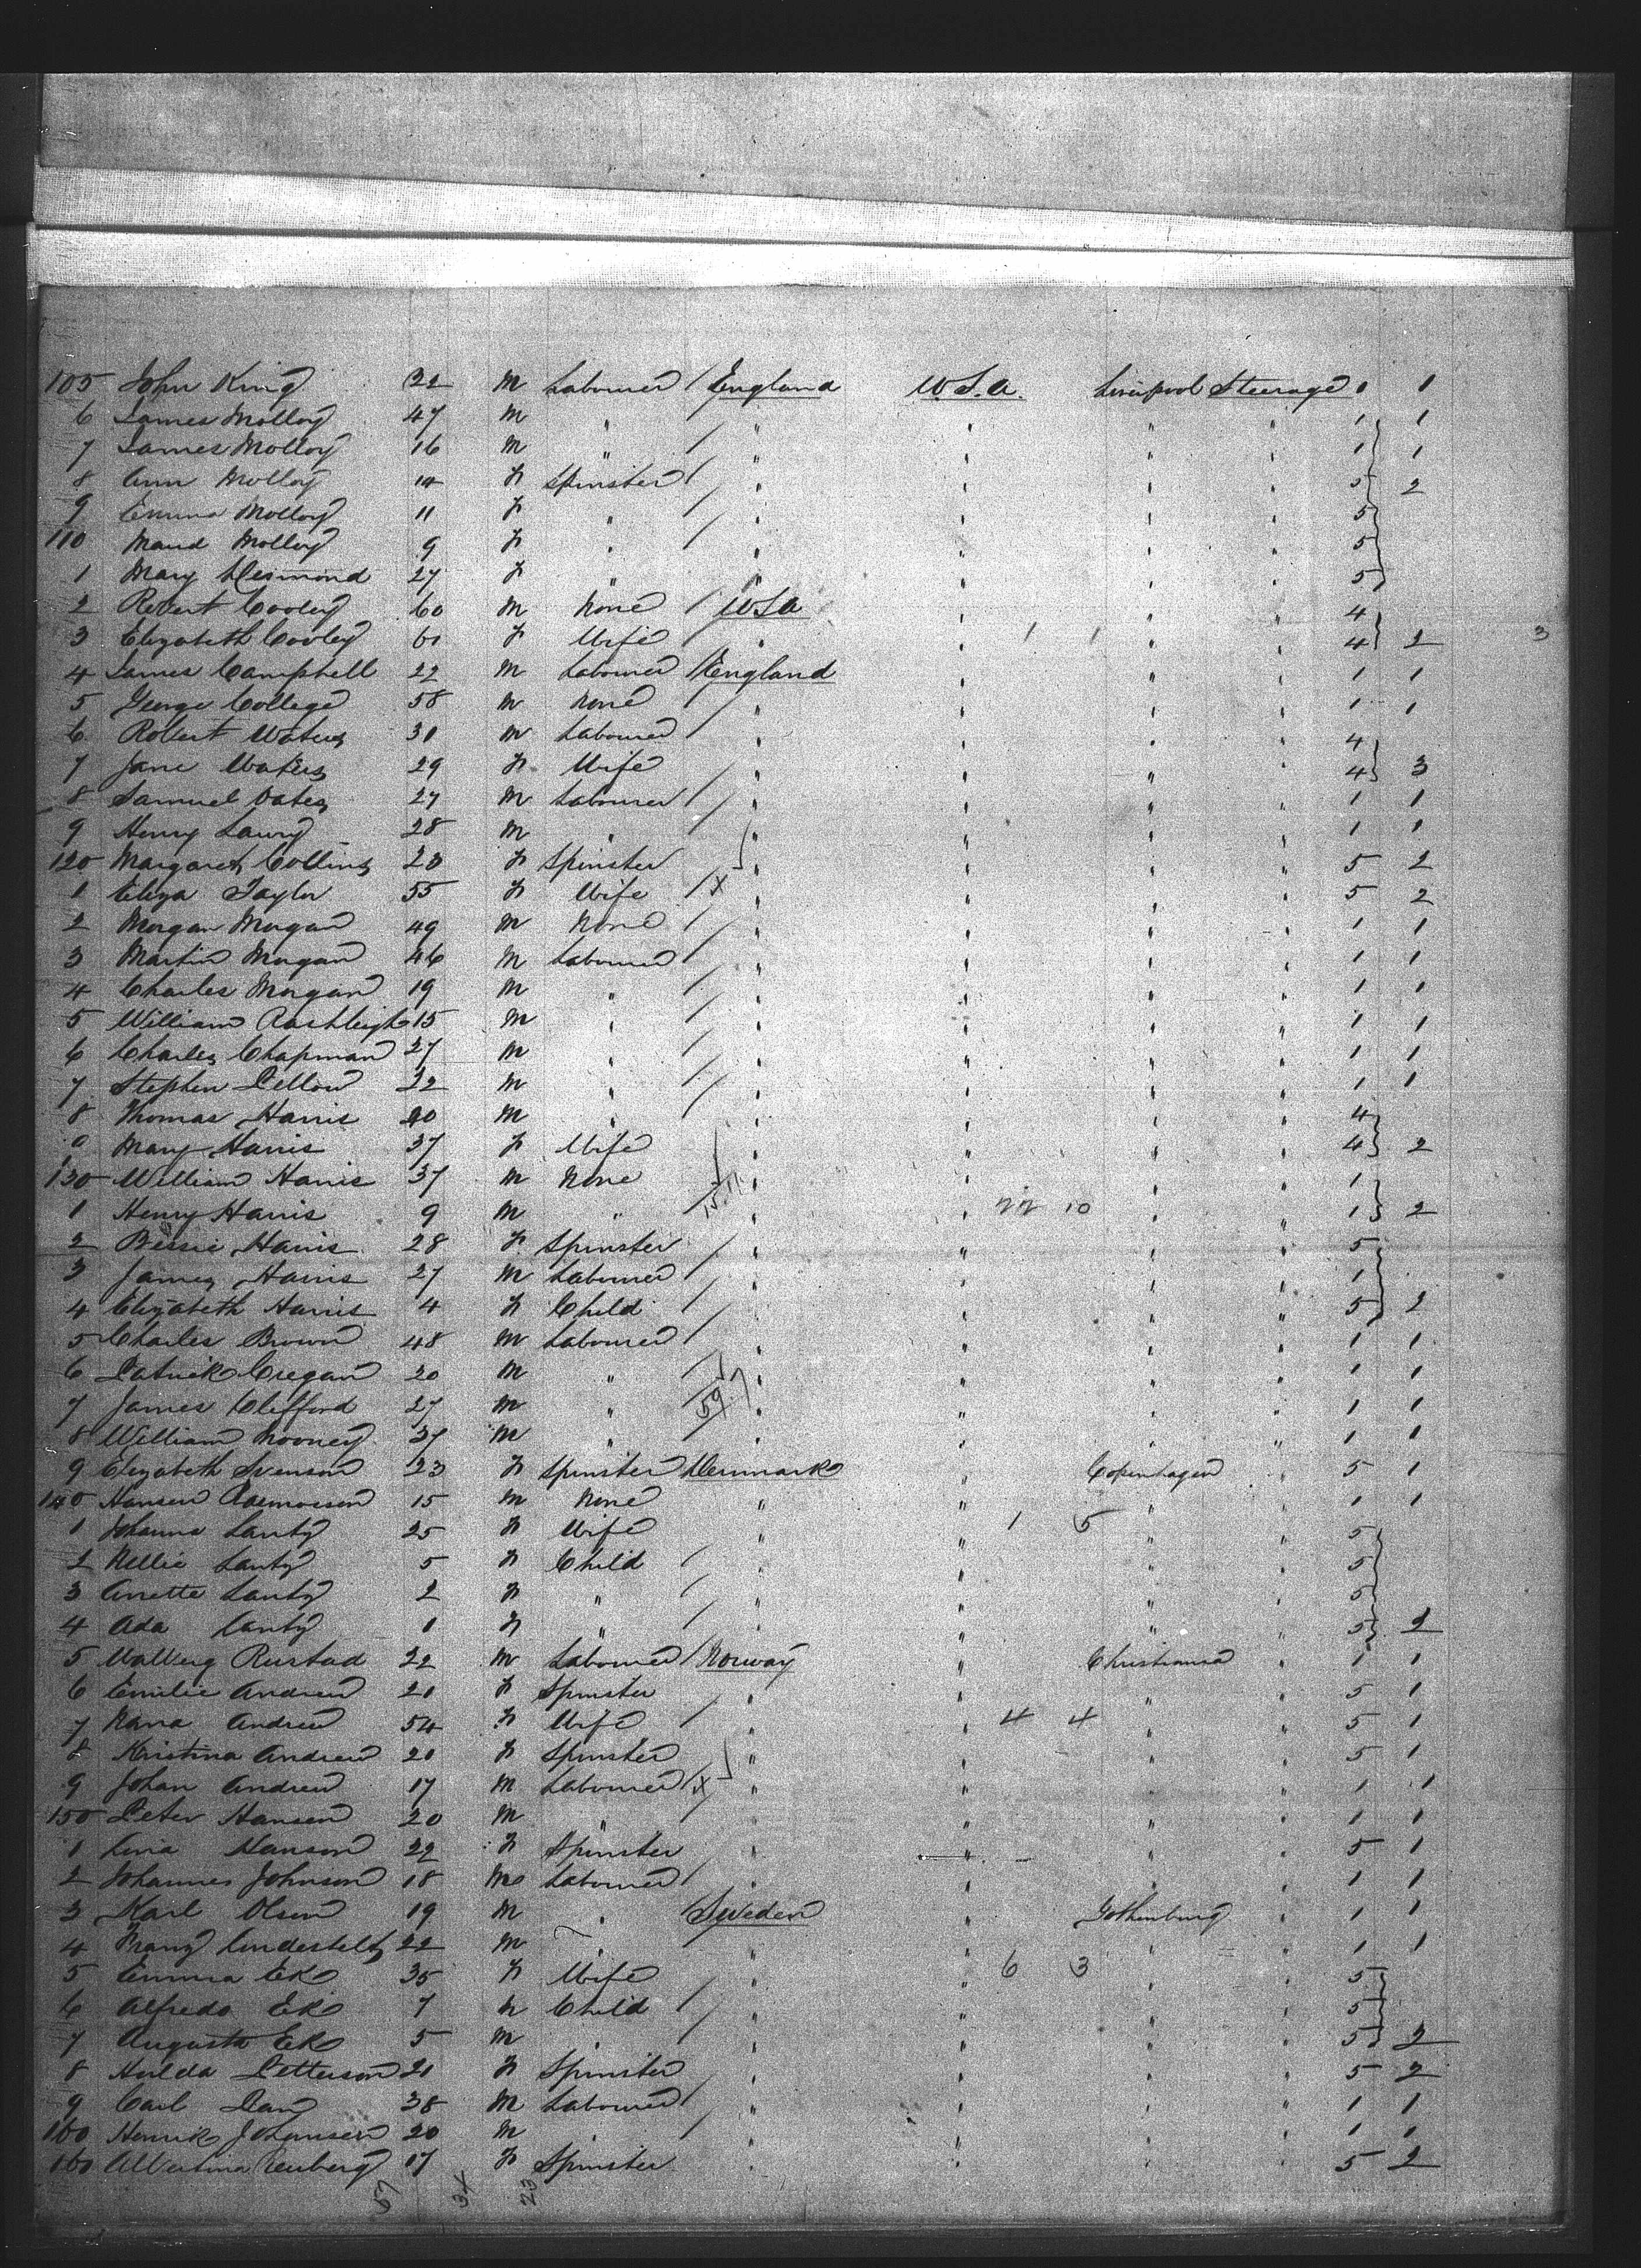 105 John King 22 M Labourer England U.S.A. Liverpool Steerage 1 1
6 James Molloy 47 M " " " " " 1 1
7 James Molloy 16 M " " " " " 1 1
8 Ann Molloy 14 F Spinster " " " " 5 2
9 Emma Molloy 11 F " " " " " 5
110 Maud Molloy 9 F " " " " " 5
1 Mary Desmond 27 F " " " " " 5
2 Robert Cooley 60 M None USA " " " 4
3 Elizabeth Cooley 61 F Wife " " 1 1 " " 4 2 3
4 James Campbell 22 M Labourer England " " " 1 1
5 George College 58 M None " " " " 1 1
6 Robert Waters 31 M Labourer " " " " 4
7 Jane Waters 29 F Wife " " " " 4 3
8 Samuel Oates 27 M Labourer " " " " 1 1
9 Henry Laury 28 M " " " " " 1 1
120 Margaret Collins 23 F Spinster " " " " 5 2
1 Eliza Taylor 55 F Wife X " " " " 5 2
2 Morgan Morgan 49 M None " " " " 1 1
3 Martin Morgan 46 M Labourer " " " " 1 1
4 Charles Morgan 19 M " " " " " 1 1
5 William Rashleigh 15 M " " " " " 1 1
6 Charles Chapman 27 M " " " " " 1 1
7 Stephen Pellow 22 M " " " " " 1 1
8 Thomas Harris 40 M " " " " " 4
9 Mary Harris 37 F Wife " " " " 4 2
130 William Harris 37 M None " " " " 1
1 Henry Harris 9 M " " " 22 10 " " 1 2
2 Bessie Harris 28 F Spinster " " " " 5
3 James Harris 27 M Labourer " " " " 1
4 Elizabeth Harris 4 F Child " " " " 5 2
5 Charles Brown 48 M Labourer " " " " 1 1
6 Patrick Cregan 20 M " " " " " 1 1
7 James Clifford 27 M " 59 " " " " 1 1
8 William Mooney 37 M " " " " " 1 1
9 Elizabeth Svenson 23 F Spinster Denmark " Copenhagen " 5 1
140 Hansen Rasmussen 15 M None " " " " 1 1
1 Johanna Lantz 25 F Wife " " 1 5 " " 5
2 Nellie Lantz 5 F Child " " " " 5
3 Anette Lantz 2 F " " " " " 5
4 Ada Lantz 1 F " " " " " 5 2
5 Walberg Rustad 22 M Labourer Norway " Christiania " 1 1
6 Emilie Andrew 21 F Spinster " " " " 5 1
7 Nana Andrew 54 F Wife " " 4 4 " " 5 1
8 Kristina Andrew 20 F Spinster " " " " 5 1
9 Johan Andrew 17 M Labourer X " " " " 1 1
150 Peter Hansen 20 M " " " " " 1 1
1 Lina Hanson 22 F Spinster " " " " 5 1
2 Johannes Johnson 18 M Labourer " " " " 1 1
3 Karl Olsen 19 M " Sweden " Gothenburg " 1 1
4 Franz 22 M " " " " " 1 1
5 Emma Ek 35 F Wife " " 6 3 " " 5
6 Alfreda Ek 7 F Child " " " " 5
7 Augusta Ek 5 M " " " " " 5 2
8 Hulda Petterson 21 F Spinster " " " " 5 2
9 Carl 38 M Labourer " " " " 1 1
160 Henrik Johansen 20 M " " " " " 1 1
161 Albertina 17 F Spinster " " " " 5 2
57 34 23